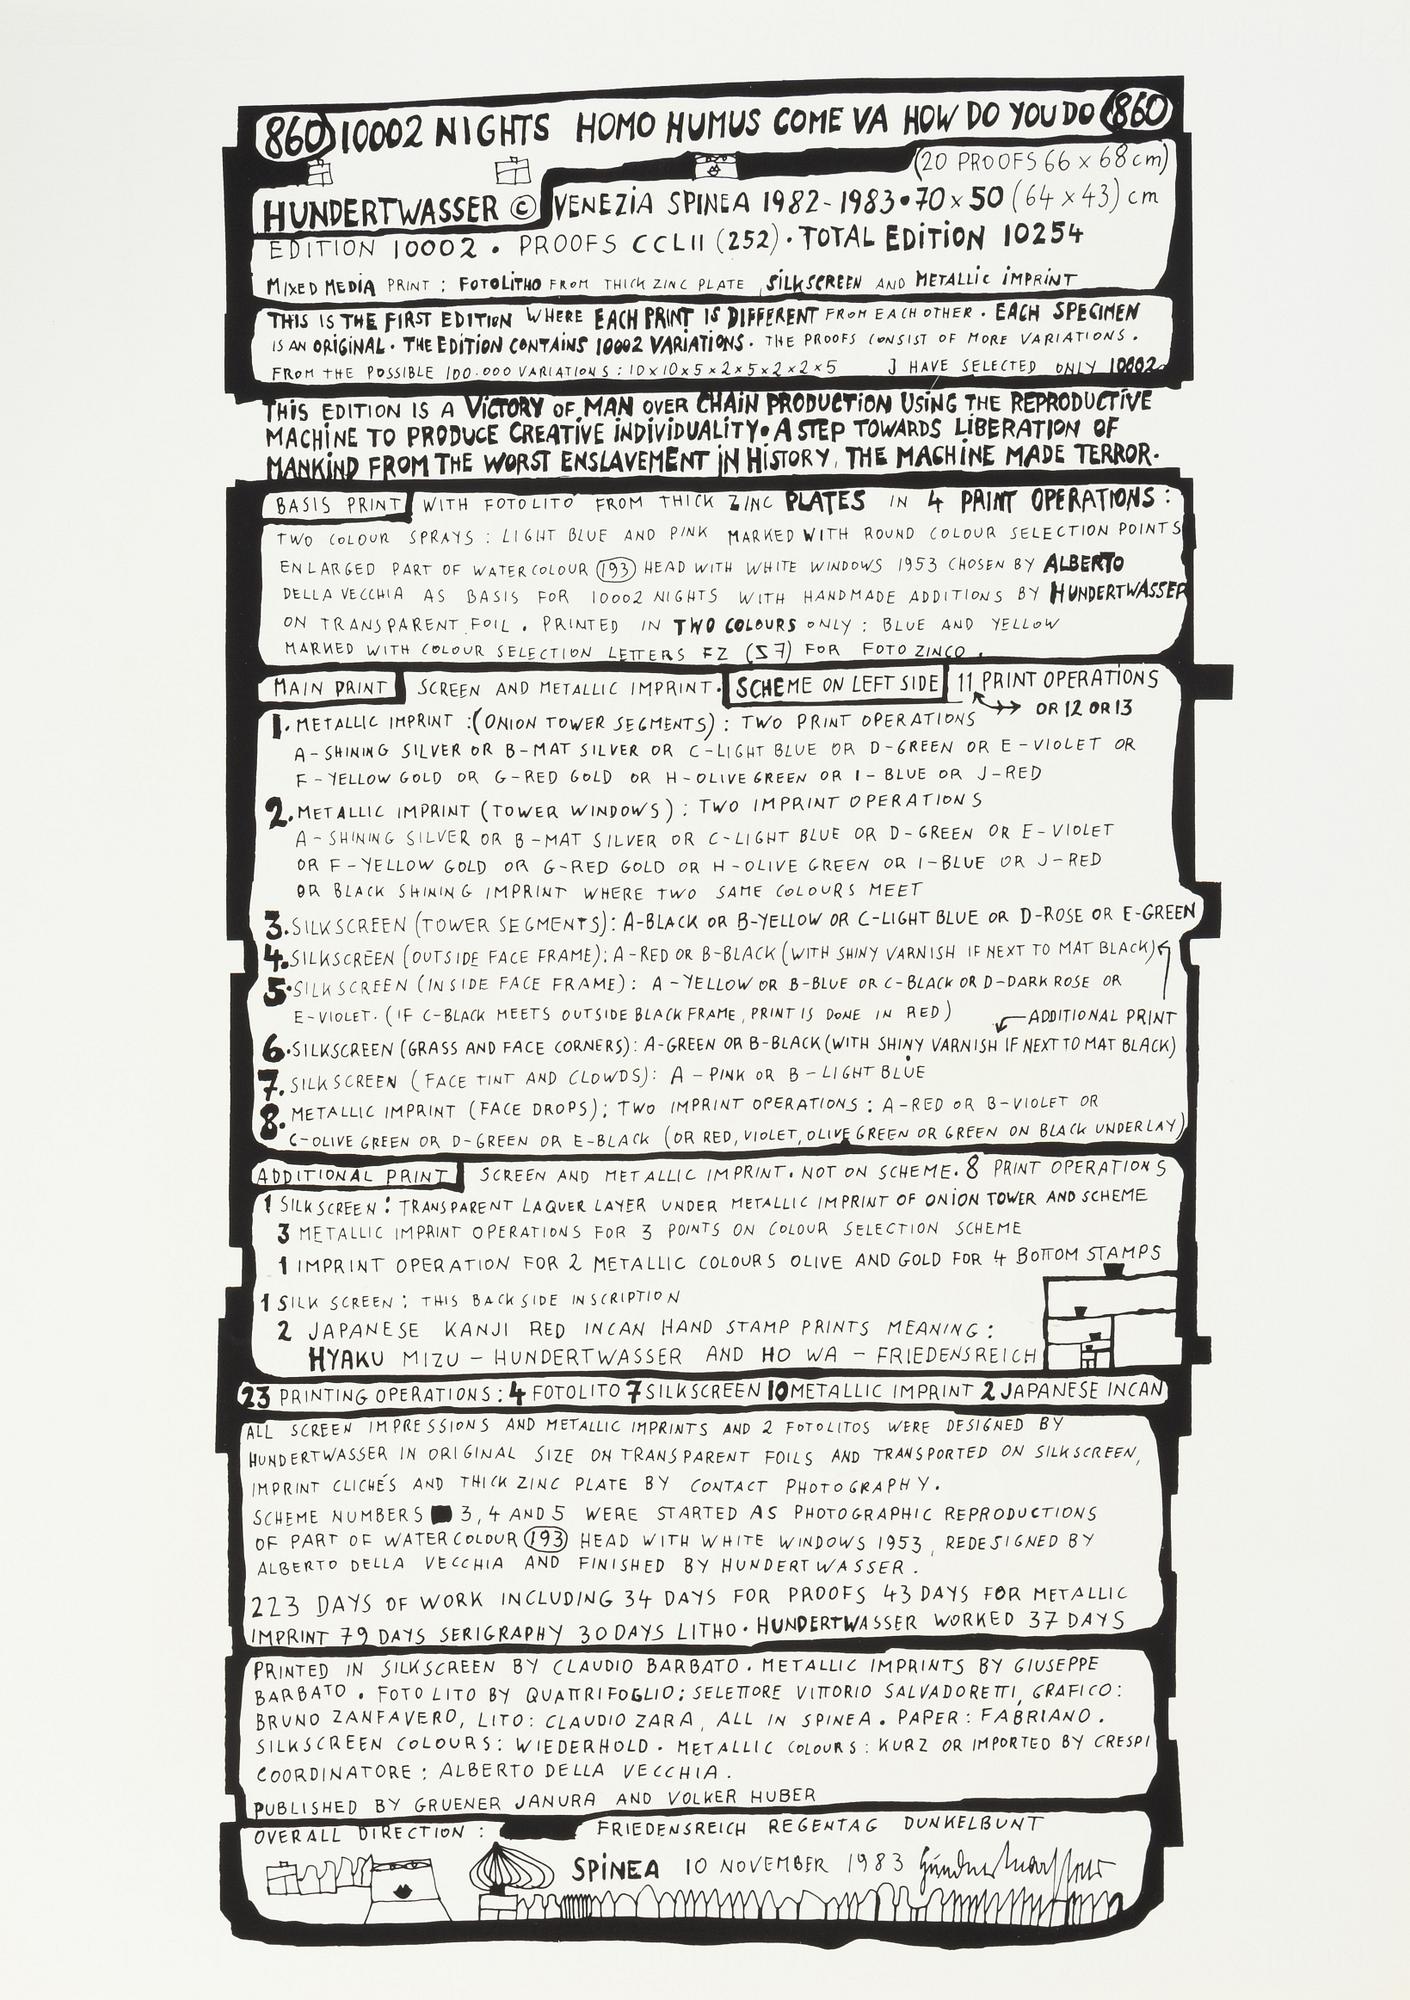 860 10002 NIGHTS HOMO HUMUS COME VA HOW DO YOU DO 860
(20 PROOFS 66 x 68 cm)
HUNDERTWASSER © VENEZIA SPINEA 1982-1983 • 70 x 50 (64 x 43) cm
EDITION 10002 • PROOFS CCLII (252) • TOTAL EDITION 10254
MIXED MEDIA PRINT : FOTOLITHO FROM THICK ZINC PLATE, SILKSCREEN AND METALLIC IMPRINT
THIS IS THE FIRST EDITION WHERE EACH PRINT IS DIFFERENT FROM EACH OTHER • EACH SPECIMEN
IS AN ORIGINAL • THE EDITION CONTAINS 10002 VARIATIONS • THE PROOFS CONSIST OF MORE VARIATIONS.
FROM THE POSSIBLE 100.000 VARIATIONS : 10x10x5x2x5x2x2x5 J HAVE SELECTED ONLY 10002.
THIS EDITION IS A VICTORY OF MAN OVER CHAIN PRODUCTION USING THE REPRODUCTIVE
MACHINE TO PRODUCE CREATIVE INDIVIDUALITY • A STEP TOWARDS LIBERATION OF
MANKIND FROM THE WORST ENSLAVEMENT IN HISTORY, THE MACHINE MADE TERROR.
BASIS PRINT WITH FOTOLITO FROM THICK ZINC PLATES IN 4 PRINT OPERATIONS :
TWO COLOUR SPRAYS : LIGHT BLUE AND PINK MARKED WITH ROUND COLOUR SELECTION POINTS
ENLARGED PART OF WATERCOLOUR 193 HEAD WITH WHITE WINDOWS 1953 CHOSEN BY ALBERTO
DELLA VECCHIA AS BASIS FOR 10002 NIGHTS WITH HANDMADE ADDITIONS BY HUNDERTWASSER
ON TRANSPARENT FOIL. PRINTED IN TWO COLOURS ONLY : BLUE AND YELLOW
MARKED WITH COLOUR SELECTION LETTERS FZ (S7) FOR FOTO ZINCO.
MAIN PRINT SCREEN AND METALLIC IMPRINT • SCHEME ON LEFT SIDE 11 PRINT OPERATIONS
OR 12 OR 13
1. METALLIC IMPRINT : (ONION TOWER SEGMENTS) : TWO PRINT OPERATIONS
A-SHINING SILVER OR B-MAT SILVER OR C-LIGHT BLUE OR D-GREEN OR E-VIOLET OR
F-YELLOW GOLD OR G-RED GOLD OR H-OLIVE GREEN OR I-BLUE OR J-RED
2. METALLIC IMPRINT (TOWER WINDOWS) : TWO IMPRINT OPERATIONS
A-SHINING SILVER OR B-MAT SILVER OR C-LIGHT BLUE OR D-GREEN OR E-VIOLET
OR F-YELLOW GOLD OR G-RED GOLD OR H-OLIVE GREEN OR I-BLUE OR J-RED
OR BLACK SHINING IMPRINT WHERE TWO SAME COLOURS MEET
3. SILKSCREEN (TOWER SEGMENTS) : A-BLACK OR B-YELLOW OR C-LIGHT BLUE OR D-ROSE OR E-GREEN
4. SILKSCREEN (OUTSIDE FACE FRAME) : A-RED OR B-BLACK (WITH SHINY VARNISH IF NEXT TO MAT BLACK)
5. SILKSCREEN (INSIDE FACE FRAME) : A-YELLOW OR B-BLUE OR C-BLACK OR D-DARK ROSE OR
E-VIOLET. (IF C-BLACK MEETS OUTSIDE BLACK FRAME, PRINT IS DONE IN RED) ADDITIONAL PRINT
6. SILKSCREEN (GRASS AND FACE CORNERS) : A-GREEN OR B-BLACK (WITH SHINY VARNISH IF NEXT TO MAT BLACK)
7. SILKSCREEN (FACE TINT AND CLOWDS) : A-PINK OR B-LIGHT BLUE
8. METALLIC IMPRINT (FACE DROPS) ; TWO IMPRINT OPERATIONS : A-RED OR B-VIOLET OR
C-OLIVE GREEN OR D-GREEN OR E-BLACK (OR RED, VIOLET, OLIVE GREEN OR GREEN ON BLACK UNDERLAY)
ADDITIONAL PRINT SCREEN AND METALLIC IMPRINT. NOT ON SCHEME. 8 PRINT OPERATIONS
1 SILKSCREEN : TRANSPARENT LAQUER LAYER UNDER METALLIC IMPRINT OF ONION TOWER AND SCHEME
3 METALLIC IMPRINT OPERATIONS FOR 3 POINTS ON COLOUR SELECTION SCHEME
1 IMPRINT OPERATION FOR 2 METALLIC COLOURS OLIVE AND GOLD FOR 4 BOTTOM STAMPS
1 SILK SCREEN : THIS BACKSIDE INSCRIPTION
2 JAPANESE KANJI RED INCAN HAND STAMP PRINTS MEANING :
HYAKU MIZU - HUNDERTWASSER AND HO WA - FRIEDENSREICH
23 PRINTING OPERATIONS : 4 FOTOLITO 7 SILKSCREEN 10 METALLIC IMPRINT 2 JAPANESE INCAN
ALL SCREEN IMPRESSIONS AND METALLIC IMPRINTS AND 2 FOTOLITOS WERE DESIGNED BY
HUNDERTWASSER IN ORIGINAL SIZE ON TRANSPARENT FOILS AND TRANSPORTED ON SILKSCREEN,
IMPRINT CLICHÉS AND THICK ZINC PLATE BY CONTACT PHOTOGRAPHY.
SCHEME NUMBERS 3, 4 AND 5 WERE STARTED AS PHOTOGRAPHIC REPRODUCTIONS
OF PART OF WATERCOLOUR 193 HEAD WITH WHITE WINDOWS 1953, REDESIGNED BY
ALBERTO DELLA VECCHIA AND FINISHED BY HUNDERTWASSER.
223 DAYS OF WORK INCLUDING 34 DAYS FOR PROOFS 43 DAYS FOR METALLIC
IMPRINT 79 DAYS SERIGRAPHY 30 DAYS LITHO • HUNDERTWASSER WORKED 37 DAYS
PRINTED IN SILKSCREEN BY CLAUDIO BARBATO • METALLIC IMPRINTS BY GIUSEPPE
BARBATO • FOTOLITO BY QUATTRIFOGLIO ; SELETTORE VITTORIO SALVADORETTI, GRAFICO :
BRUNO ZANFAVERO, LITO : CLAUDIO ZARA, ALL IN SPINEA. PAPER : FABRIANO.
SILKSCREEN COLOURS : WIEDERHOLD • METALLIC COLOURS : KURZ OR IMPORTED BY CRESPI
COORDINATORE : ALBERTO DELLA VECCHIA.
PUBLISHED BY GRUENER JANURA AND VOLKER HUBER
OVERALL DIRECTION : FRIEDENSREICH REGENTAG DUNKELBUNT
SPINEA 10 NOVEMBER 1983 Hundertwasser